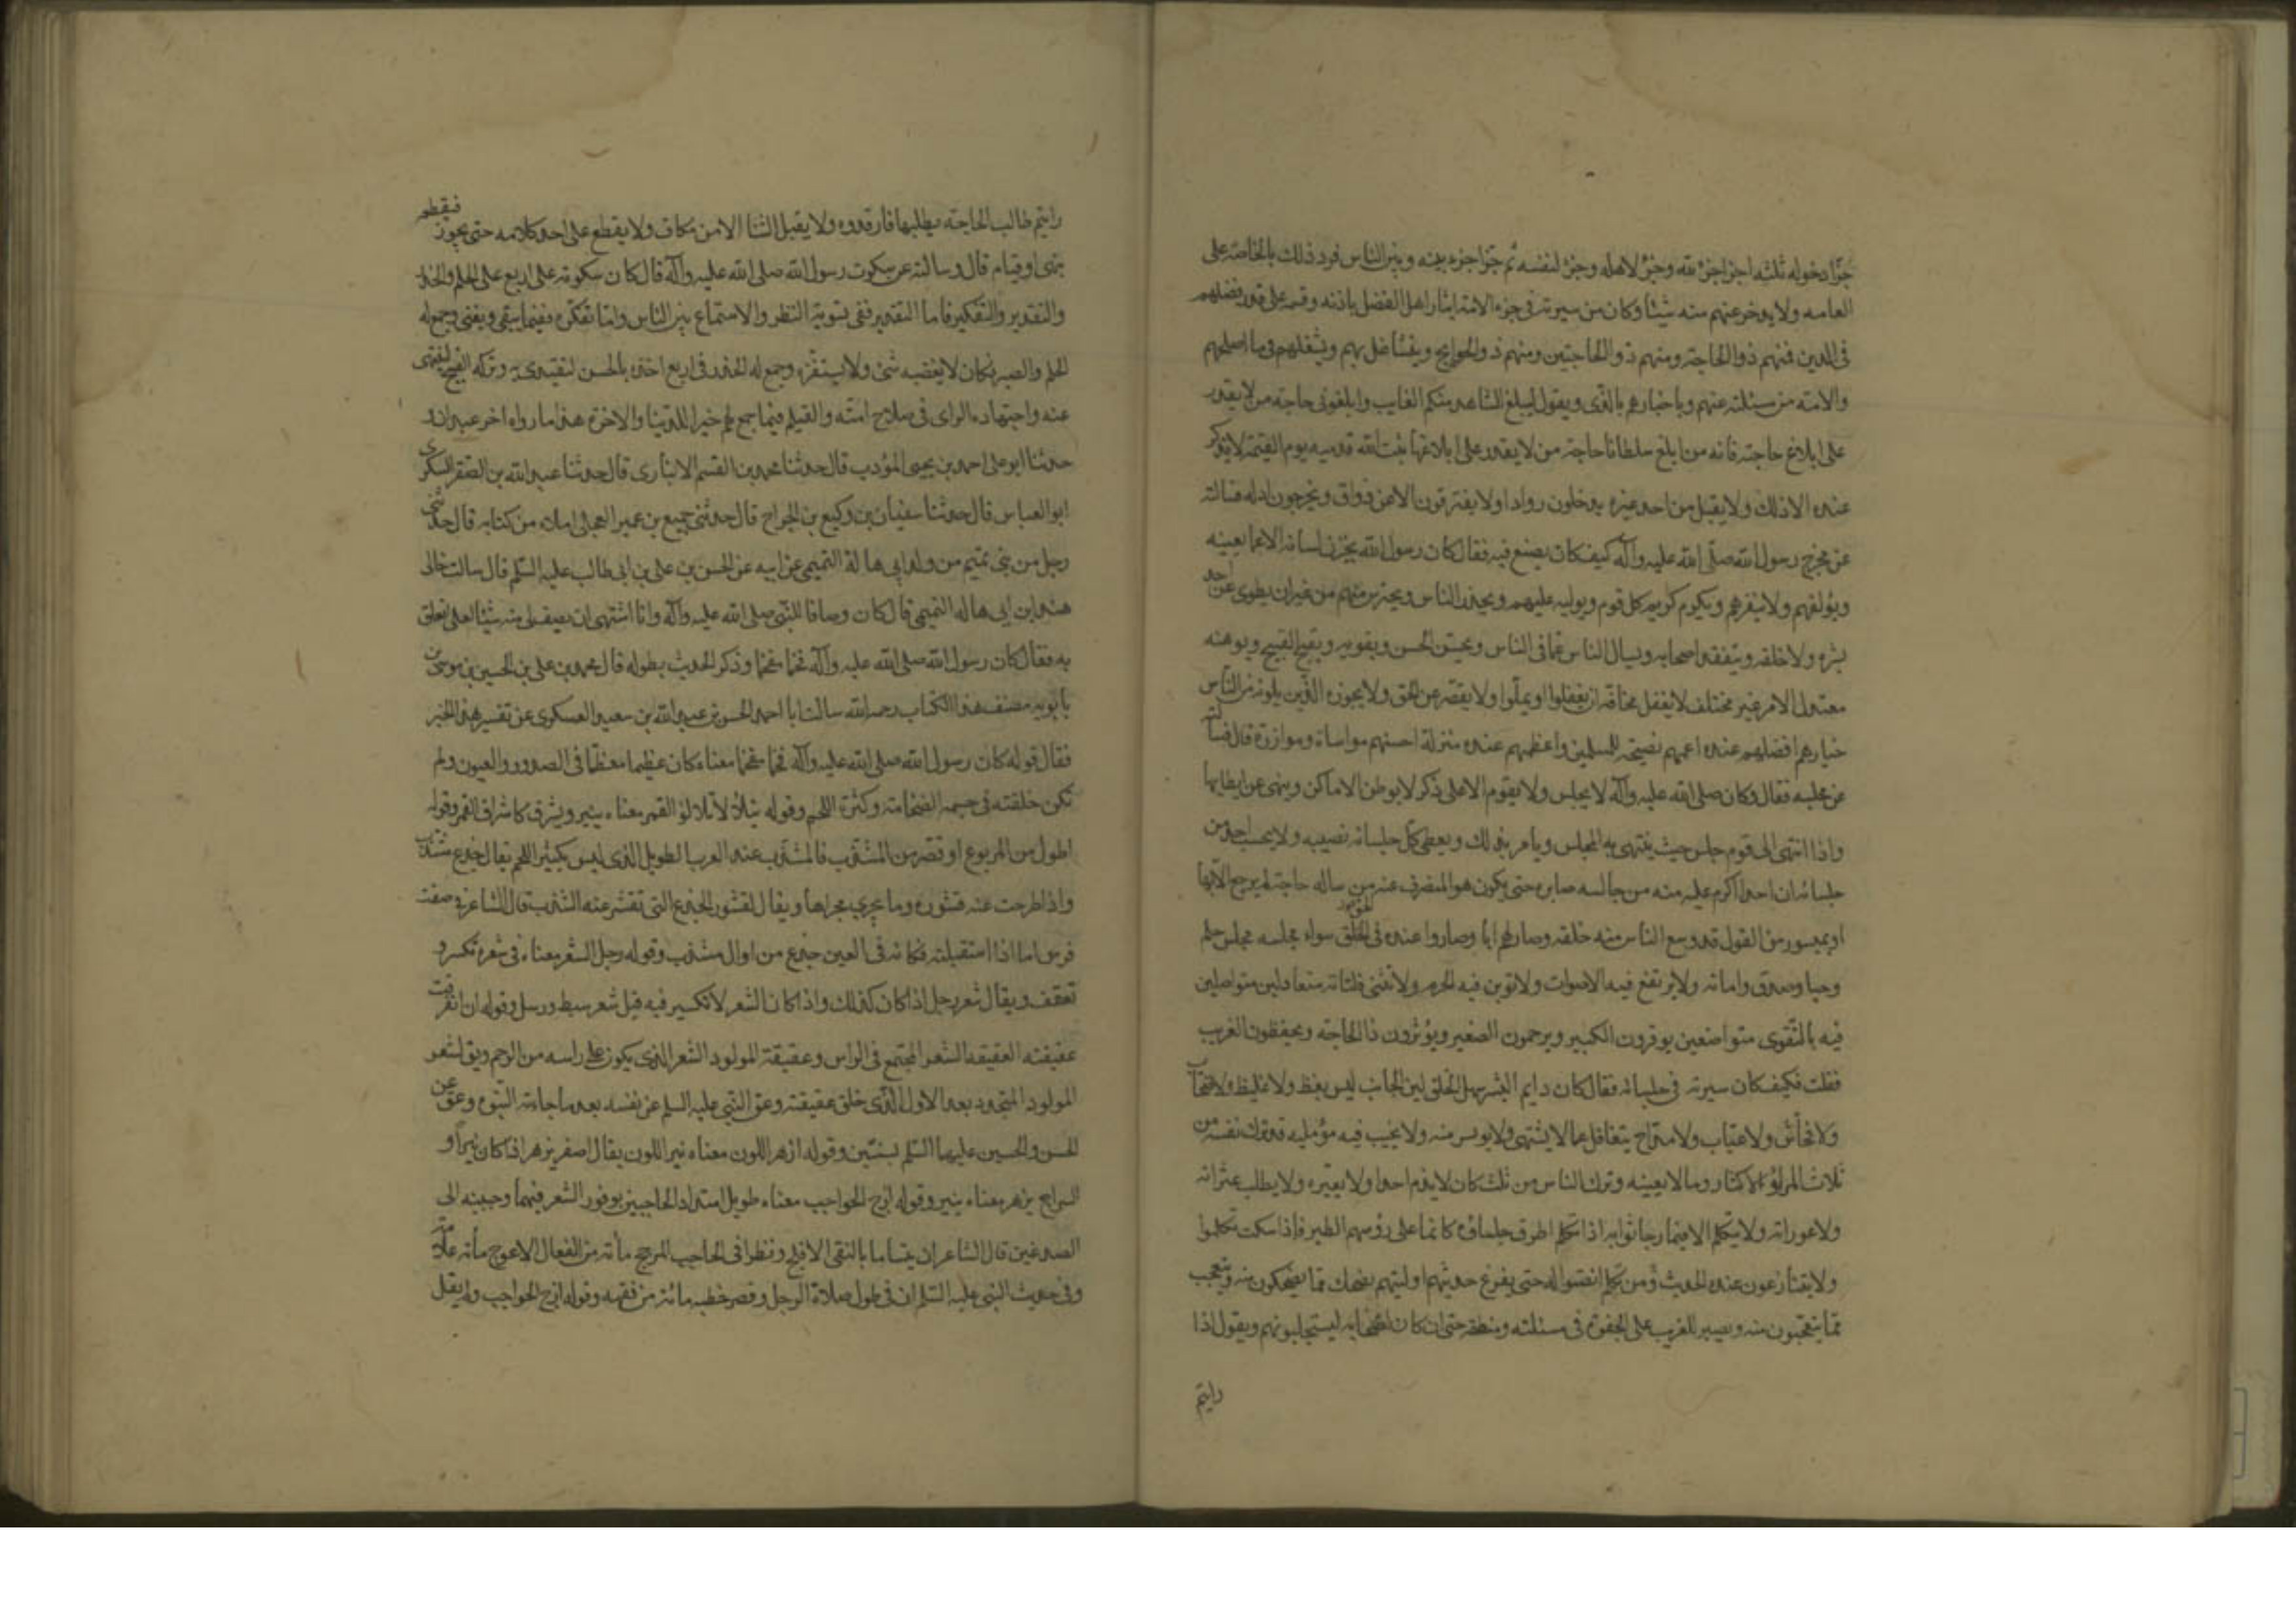 جزأ دخوله ثلثه اجزا جزء لله وجزء لاهله وجزء لنفسه ثم جزا جزءه بينه وبين الناس فرد ذلك بالخاصة على
العامه ولا يدخر عنهم منه شيئا وكان من سيرته فى جزء الامة ايثار اهل الفضل باذنه وقسمه على قدر فضلهم
فى الدين فمنهم ذو الحاجة ومنهم ذو الحاجتين ومنهم ذو الحوايج ويتشاغل بهم ويشغلهم فى ما اصلحهم
والامة من مسئلته عنهم وباخبارهم بالذى ويقول ليبلغ الشاهد منكم الغايب وابلغونى حاجة من لا يقدر
على ابلاغ حاجته فانه من ابلغ سلطانا حاجة من لا يقدر على ابلاغها ثبت الله قدميه يوم القيمة لا يذكر
عنده الا ذلك ولا يقبل من احد غيره يدخلون روادا ولا يفترقون الا عن ذواق ويخرجون ادلة فسالته
عن مخرج رسول الله صلى الله عليه وآله كيف كان يصنع فيه فقال كان رسول الله يخزن لسانه الا عما يعينه
ويؤلفهم ولا ينفرهم ويكرم كريم كل قوم ويوليه عليهم ويحذر الناس ويحترس منهم من غير ان يطوى عن احد
بشره ولا خلقه ويتفقد اصحابه ويسال الناس عما فى الناس ويحسن الحسن ويقويه ويقبح القبيح ويوهنه
معتدل الامر غير مختلف لا يغفل مخافة ان يغفلوا او يملوا ولا يقصر عن الحق ولا يجوزه الذين يلونه من الناس
خيارهم افضلهم عنده اعمهم نصيحة للمسلمين واعظمهم عنده منزلة احسنهم مواساة وموازرة قال فسالته
عن مجلسه فقال وكان صلى الله عليه وآله لا يجلس ولا يقوم الا على ذكر لا يوطن الاماكن وينهى عن ايطانها
واذا انتهى الى قوم جلس حيث ينتهى به المجلس ويأمر بذلك ويعطى كل جلسائه نصيبه ولا يحسب احد من
جلسائه ان احدا اكرم عليه منه من جالسه صابره حتى يكون هو المنصرف عنه من ساله حاجة لم يرجع الا بها
او بميسور من القول قد وسع الناس منه خلقه وصار لهم ابا وصاروا عنده فى الخلق سواء مجلسه مجلس حلم
وحيا وصدق وامانة ولا يرتفع فيه الاصوات ولا توبن فيه الحرم ولا تنثى فلتاته متعادلين متواصلين
فيه بالتقوى متواضعين يوقرون الكبير ويرحمون الصغير ويؤثرون ذا الحاجة ويحفظون الغريب
فقلت فكيف كان سيرته فى جلسائه فقال كان دايم البشر سهل الخلق لين الجانب ليس بفظ ولا غليظ ولا صخاب
ولا فحاش ولا عياب ولا مداح يتغافل عما لا يشتهى ولا يويس منه ولا يخيب فيه مؤمليه قد ترك نفسه من
ثلاث المراؤ الاكثار وما لا يعينه وترك الناس من ثلث كان لا يذم احدا ولا يعيره ولا يطلب عثراته
ولا عوراته ولا يتكلم الا فيما رجا ثوابه اذا تكلم اطرق جلساؤه كانما على رؤسهم الطير فاذا سكت تكلموا
ولا يتنازعون عنده الحديث ومن تكلم انصتوا له حتى يفرغ حديثهم اوليتهم يضحك مما يضحكون منه ويتعجب
مما يتعجبون منه ويصبر للغريب على الجفوة فى مسئلته ومنطقه حتى ان كان اصحابه ليستجلبونهم ويقول اذا
رايتم
رايتم طالب الحاجة يطلبها فارفدوه ولا يقبل الثنا الا من مكاف ولا يقطع على احد كلامه حتى يجوز فيقطعه
بنهى او قيام قال وسالته عن سكوت رسول الله صلى الله عليه وآله قال كان سكوته على اربع على الحلم والحذر
والتقدير والتفكير فاما التقدير ففى تسوية النظر والاستماع بين الناس واما تفكره ففيما يبقى ويفنى وجمع له
الحلم والصبر فكان لا يغضبه شئ ولا يستفزه وجمع له الحذر فى اربع اخذه بالحسن ليقتدى به وتركه القبيح لينتهى
عنه واجتهاده الراى فى صلاح امته والقيام فيما جمع لهم خير الدنيا والاخرة هذا ما رواه اخر عبدان
حدثنا ابو على احمد بن يحيى المؤدب قال حدثنا محمد بن القسم الانبارى قال حدثنا عبد الله بن الصقر السكرى
ابو العباس قال حدثنا سفيان بن وكيع بن الجراح قال حدثنى جميع بن عمير العجلى املاء من كتابه قال حدثنى
رجل من بنى تميم من ولد ابى هالة التميمى عن ابيه عن الحسن بن على بن ابى طالب عليه السلم قال سالت خالى
هند ابن ابى هاله التميمى قال كان وصافا للنبى صلى الله عليه وآله وانا اشتهى ان يصف لى منه شيئا لعلى اتعلق
به فقال كان رسول الله صلى الله عليه وآله فخما مفخما وذكر الحديث بطوله قال محمد بن على بن الحسين بن موسى بن
بابويه مصنف هذا الكتاب رحمه الله سالت ابا احمد الحسن بن عبد الله بن سعيد العسكرى عن تفسير هذا الخبر
فقال قوله كان رسول الله صلى الله عليه وآله فخما مفخما معناه كان عظيما معظما فى الصدور والعيون ولم
تكن خلقته فى جسمه الضخامة وكثرة اللحم وقوله يتلألأ تلألؤ القمر معناه ينير ويشرق كاشراق القمر وقوله
اطول من المربوع او قصر من المشذب فالمشذب عند العرب الطويل الذى ليس بكثير اللحم يقال جذع مشذب
واذا طرحت عنه قشوره وما يجرى مجراها ويقال لقشور الجذع التى تقشر عنه الشذب قال الشاعر فى صفت
فرس اما اذا استقبلته فكانه فى العين جذع من اوال مشذب وقوله رجل الشعر معناه فى شعره تكسر و
تعقف ويقال شعر رجل اذا كان كذلك واذا كان الشعر لا تكسير فيه قيل شعر سبط ورسل وقوله ان انفرقت
عقيقته العقيقه الشعر المجتمع فى الراس وعقيقة المولود الشعر الذى يكون على راسه من الرحم ويق لشعر
المولود المتجدد بعد الاول الذى خلق عقيقته وعق النبى عليه السلم عن نفسه بعد ما جاءته النبوه وعق عن
الحسن والحسين عليهما السلم بسنتين وقوله ازهر اللون معناه نير اللون يقال اصفر يزهر اذا كان نيرا و
السراج يزهر معناه ينير وقوله ازج الحواجب معناه طويل امتداد الحاجبين بوفور الشعر فيهما وجبينه الى
الصدغين قال الشاعر ان يتساما بالنقى الافلج ونظرا فى الحاجب المزجج مأنة من الفعال الاعوج مأنة علامة
وفى حديث النبى عليه السلم ان فى طول صلاة الرجل وقصر خطبه مائنة من فقهه وقوله ازج الحواجب ولم يقل